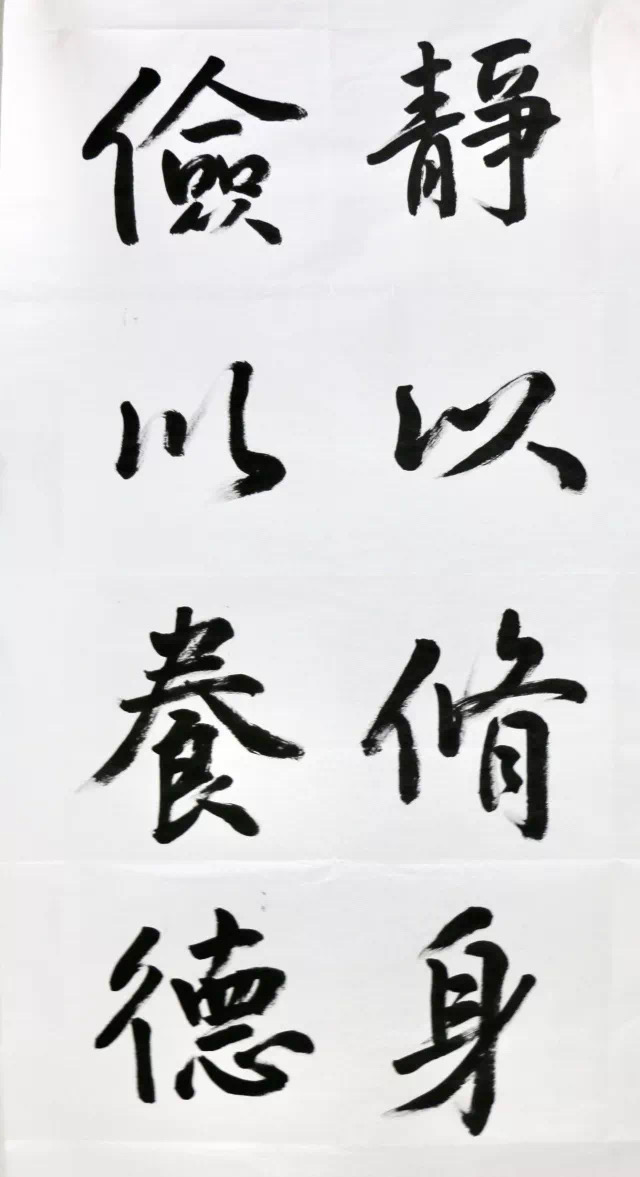 靜以脩身
儉以養德